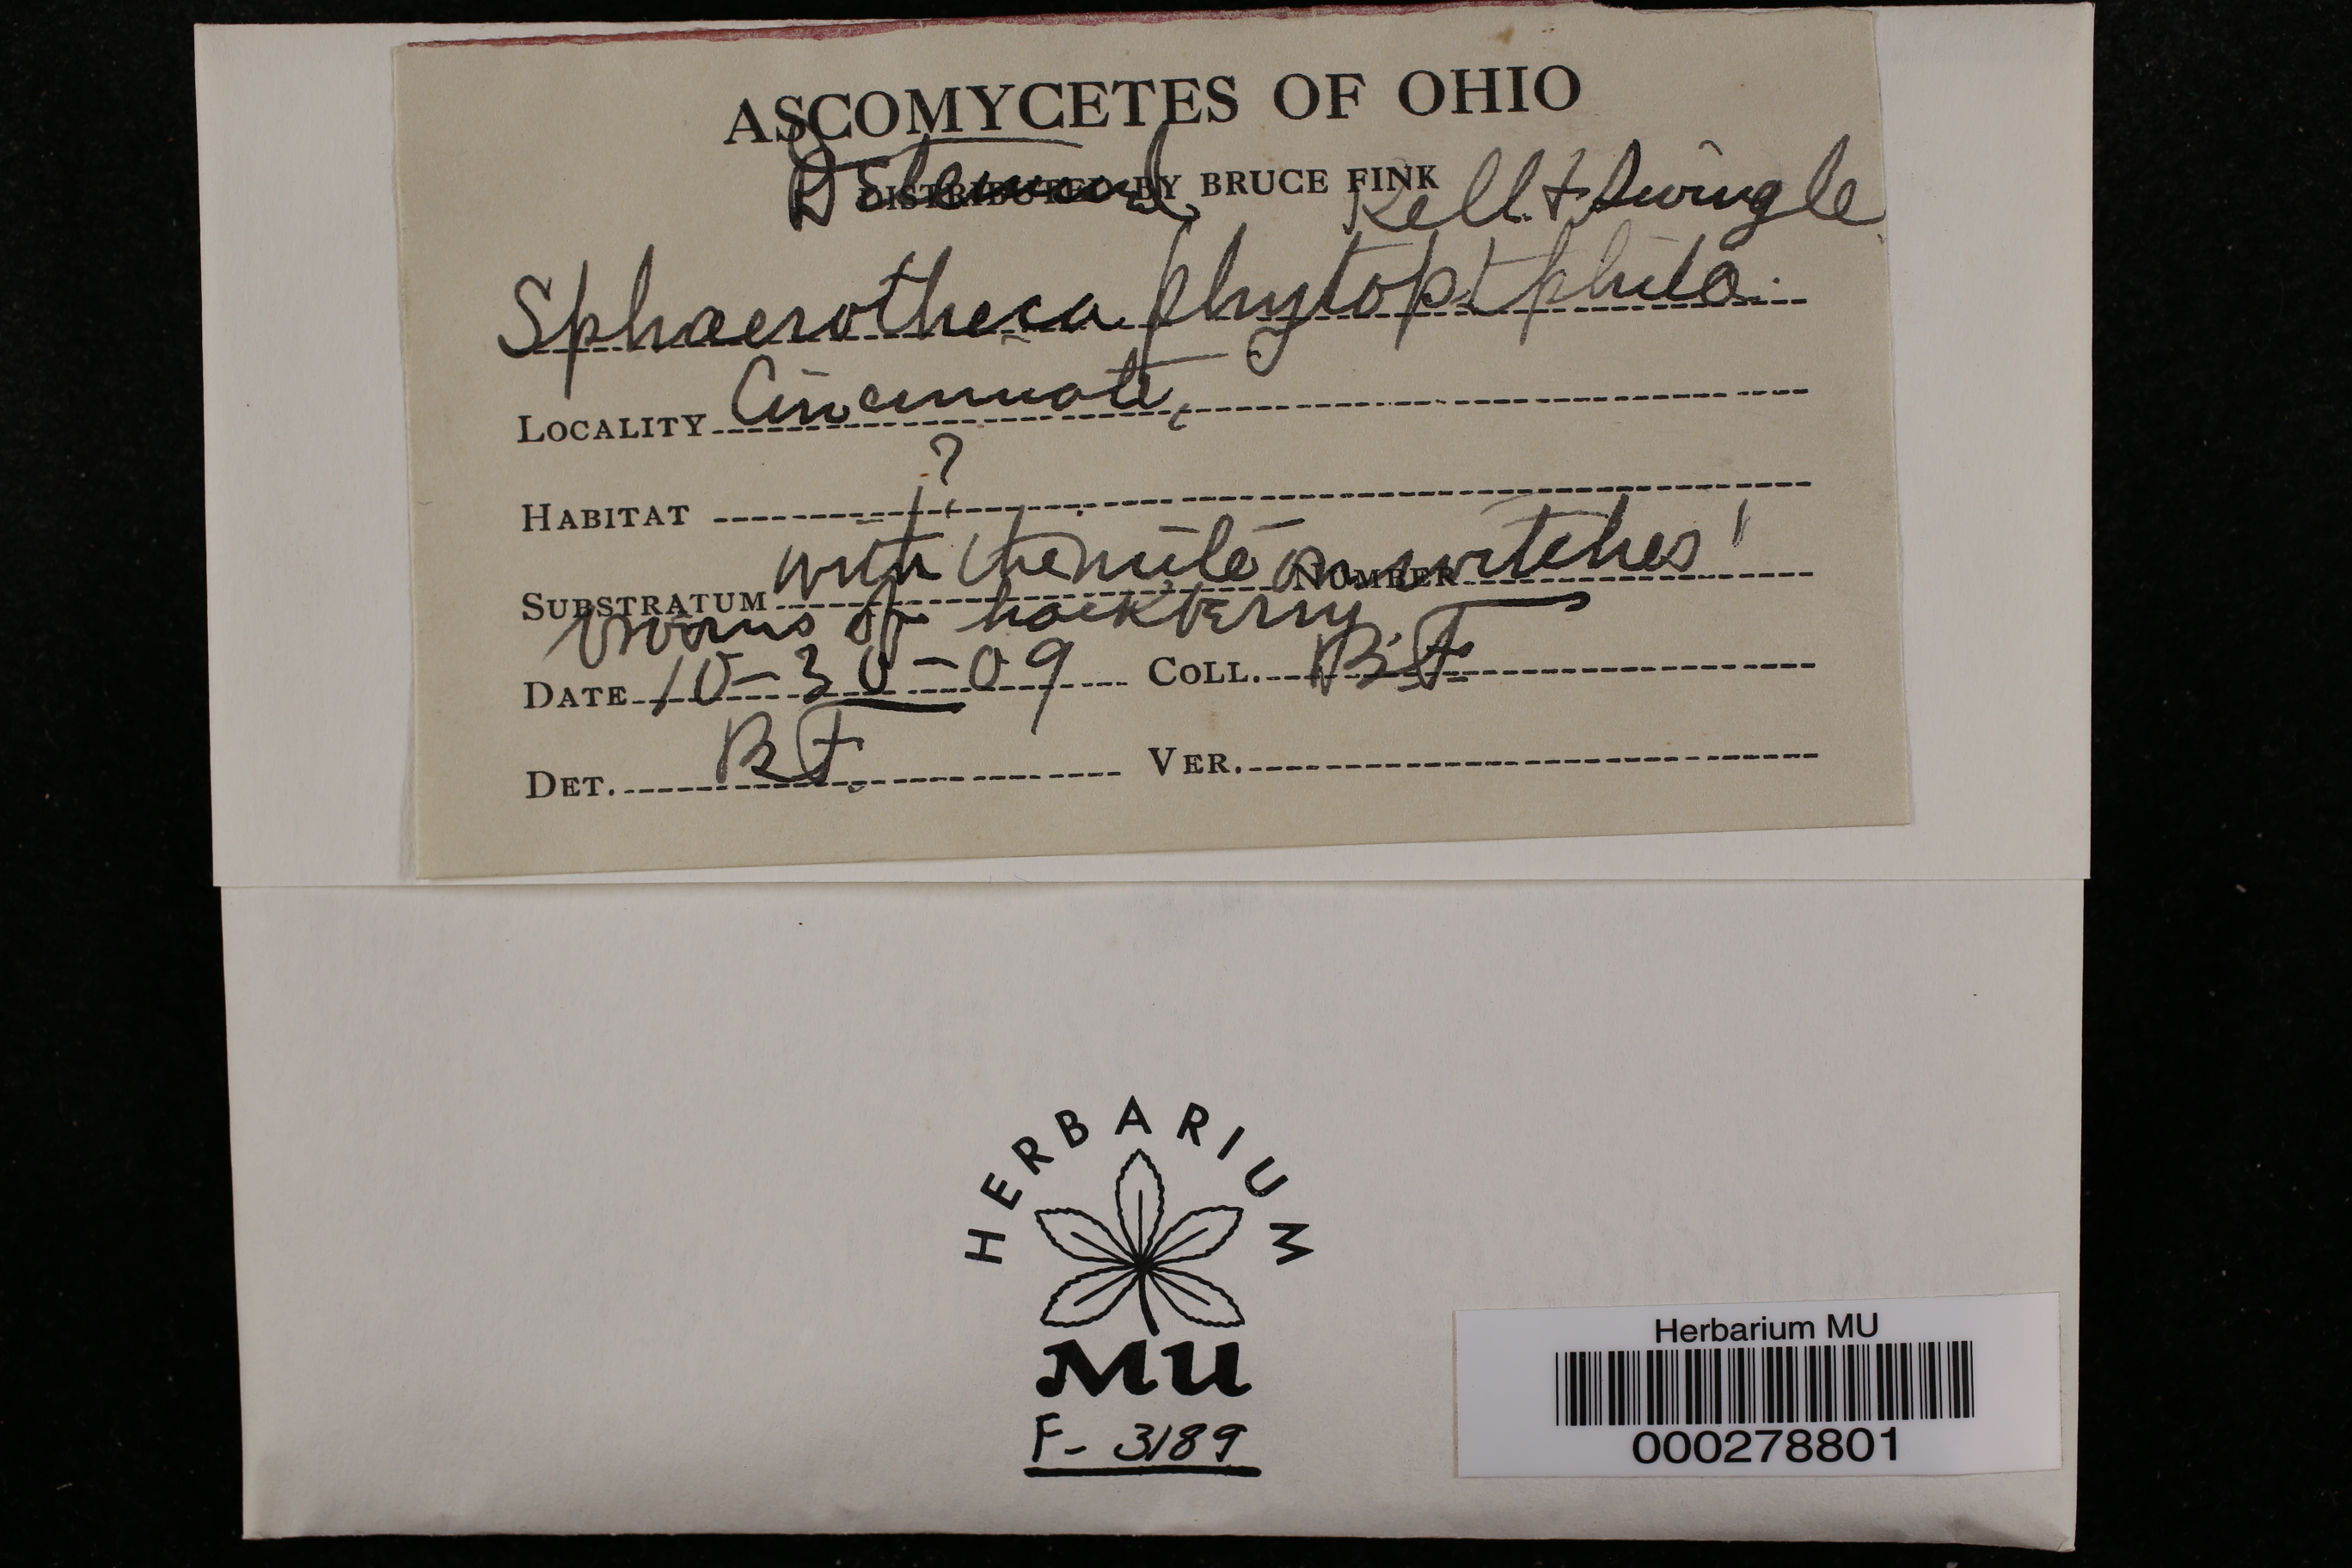 ASCOMYCETES OF OHIO
DISTRIBUTED BY BRUCE FINK
Kell. & Swingle
Sphaerotheca phytoptphila.
LOCALITY Cincinnati,
HABITAT ?
SUBSTRATUM with the mite on witches' NUMBER
brooms of hackberry.
DATE 10-30-09 COLL. B.F.
DET. B.F. VER.
HERBARIUM
MU
F- 3189
Herbarium MU
000278801